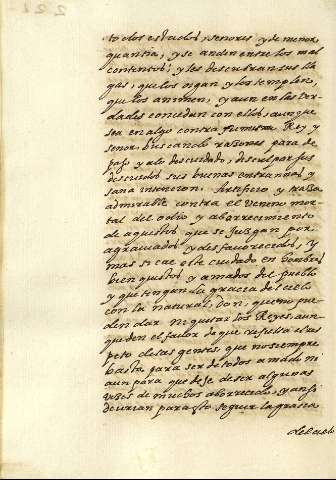 221
todos estados, señores y de menor
quantia, y se anden entre los mal
contentos; y les descubran sus lla
gas, que los oigan y los templen,
que los animen, y aun en las ver
dades concedan con ellos, aunque
sea en algo contra su mismo Rey y
señor, buscando razones para de
paso, y al descuidado, disculpar sus
descuidos sus buenas entrañas y
sana intencion. Artificio y traza
admirable contra el veneno mor
tal del odio y aborrecimiento
de aquestos que se juzgan por
agraviados y desfavorecidos, y
mas si cae este cuidado en hombres
bien quistos y amados del Pueblo
y que tengan la gracia del cielo
con la natural; Don, que no pue
den dar ni quitar los Reyes, aun
que den el favor de que resulta el res
peto de las gentes, que no siempre
basta para ser de todos amado ni
aun para que deje de ser algunas
veces de muchos aborrecido, y ansi
devrian para esto seguir la gracia
del cielo